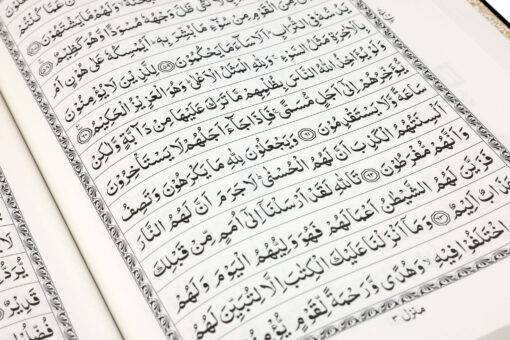 عَمَّا كُنْتُمْ
وَلَهُمْ مَّا يَشْتَهُوْنَ
ظَلَّ وَجْهُهٗ مُسْوَدًّا وَّهُوَ كَظِيْمٌ
مِنَ الْقَوْمِ مِنْ سُوْٓءِ مَا بُشِّرَ بِهٖ ؕ اَيُمْسِكُهٗ عَلٰى هُوْنٍ اَمْ
يَدُسُّهٗ فِى التُّرَابِ ؕ اَلَا سَآءَ مَا يَحْكُمُوْنَ ﴿۵۹﴾ لِلَّذِيْنَ لَا يُؤْمِنُوْنَ
بِالْاٰخِرَةِ مَثَلُ السَّوْءِ ۚ وَلِلّٰهِ الْمَثَلُ الْاَعْلٰى ؕ وَهُوَ الْعَزِيْزُ الْحَكِيْمُ ﴿۶۰﴾
وَلَوْ يُؤَاخِذُ اللّٰهُ النَّاسَ بِظُلْمِهِمْ مَّا تَرَكَ عَلَيْهَا مِنْ دَآبَّةٍ وَّلٰكِنْ
يُّؤَخِّرُهُمْ اِلٰٓى اَجَلٍ مُّسَمًّى ۚ فَاِذَا جَآءَ اَجَلُهُمْ لَا يَسْتَاْخِرُوْنَ
سَاعَةً وَّلَا يَسْتَقْدِمُوْنَ ﴿۶۱﴾ وَيَجْعَلُوْنَ لِلّٰهِ مَا يَكْرَهُوْنَ وَتَصِفُ
اَلْسِنَتُهُمُ الْكَذِبَ اَنَّ لَهُمُ الْحُسْنٰى ؕ لَا جَرَمَ اَنَّ لَهُمُ النَّارَ
وَاَنَّهُمْ مُّفْرَطُوْنَ ﴿۶۲﴾ تَاللّٰهِ لَقَدْ اَرْسَلْنَآ اِلٰٓى اُمَمٍ مِّنْ قَبْلِكَ
فَزَيَّنَ لَهُمُ الشَّيْطٰنُ اَعْمَالَهُمْ فَهُوَ وَلِيُّهُمُ الْيَوْمَ وَلَهُمْ
عَذَابٌ اَلِيْمٌ ﴿۶۳﴾ وَمَآ اَنْزَلْنَا عَلَيْكَ الْكِتٰبَ اِلَّا لِتُبَيِّنَ لَهُمُ
اخْتَلَفُوْا فِيْهِ ۙ وَهُدًى وَّرَحْمَةً لِّقَوْمٍ يُّؤْمِنُوْنَ
منزل ۳
قَدِيْرٌ
فُضِّلُوْا